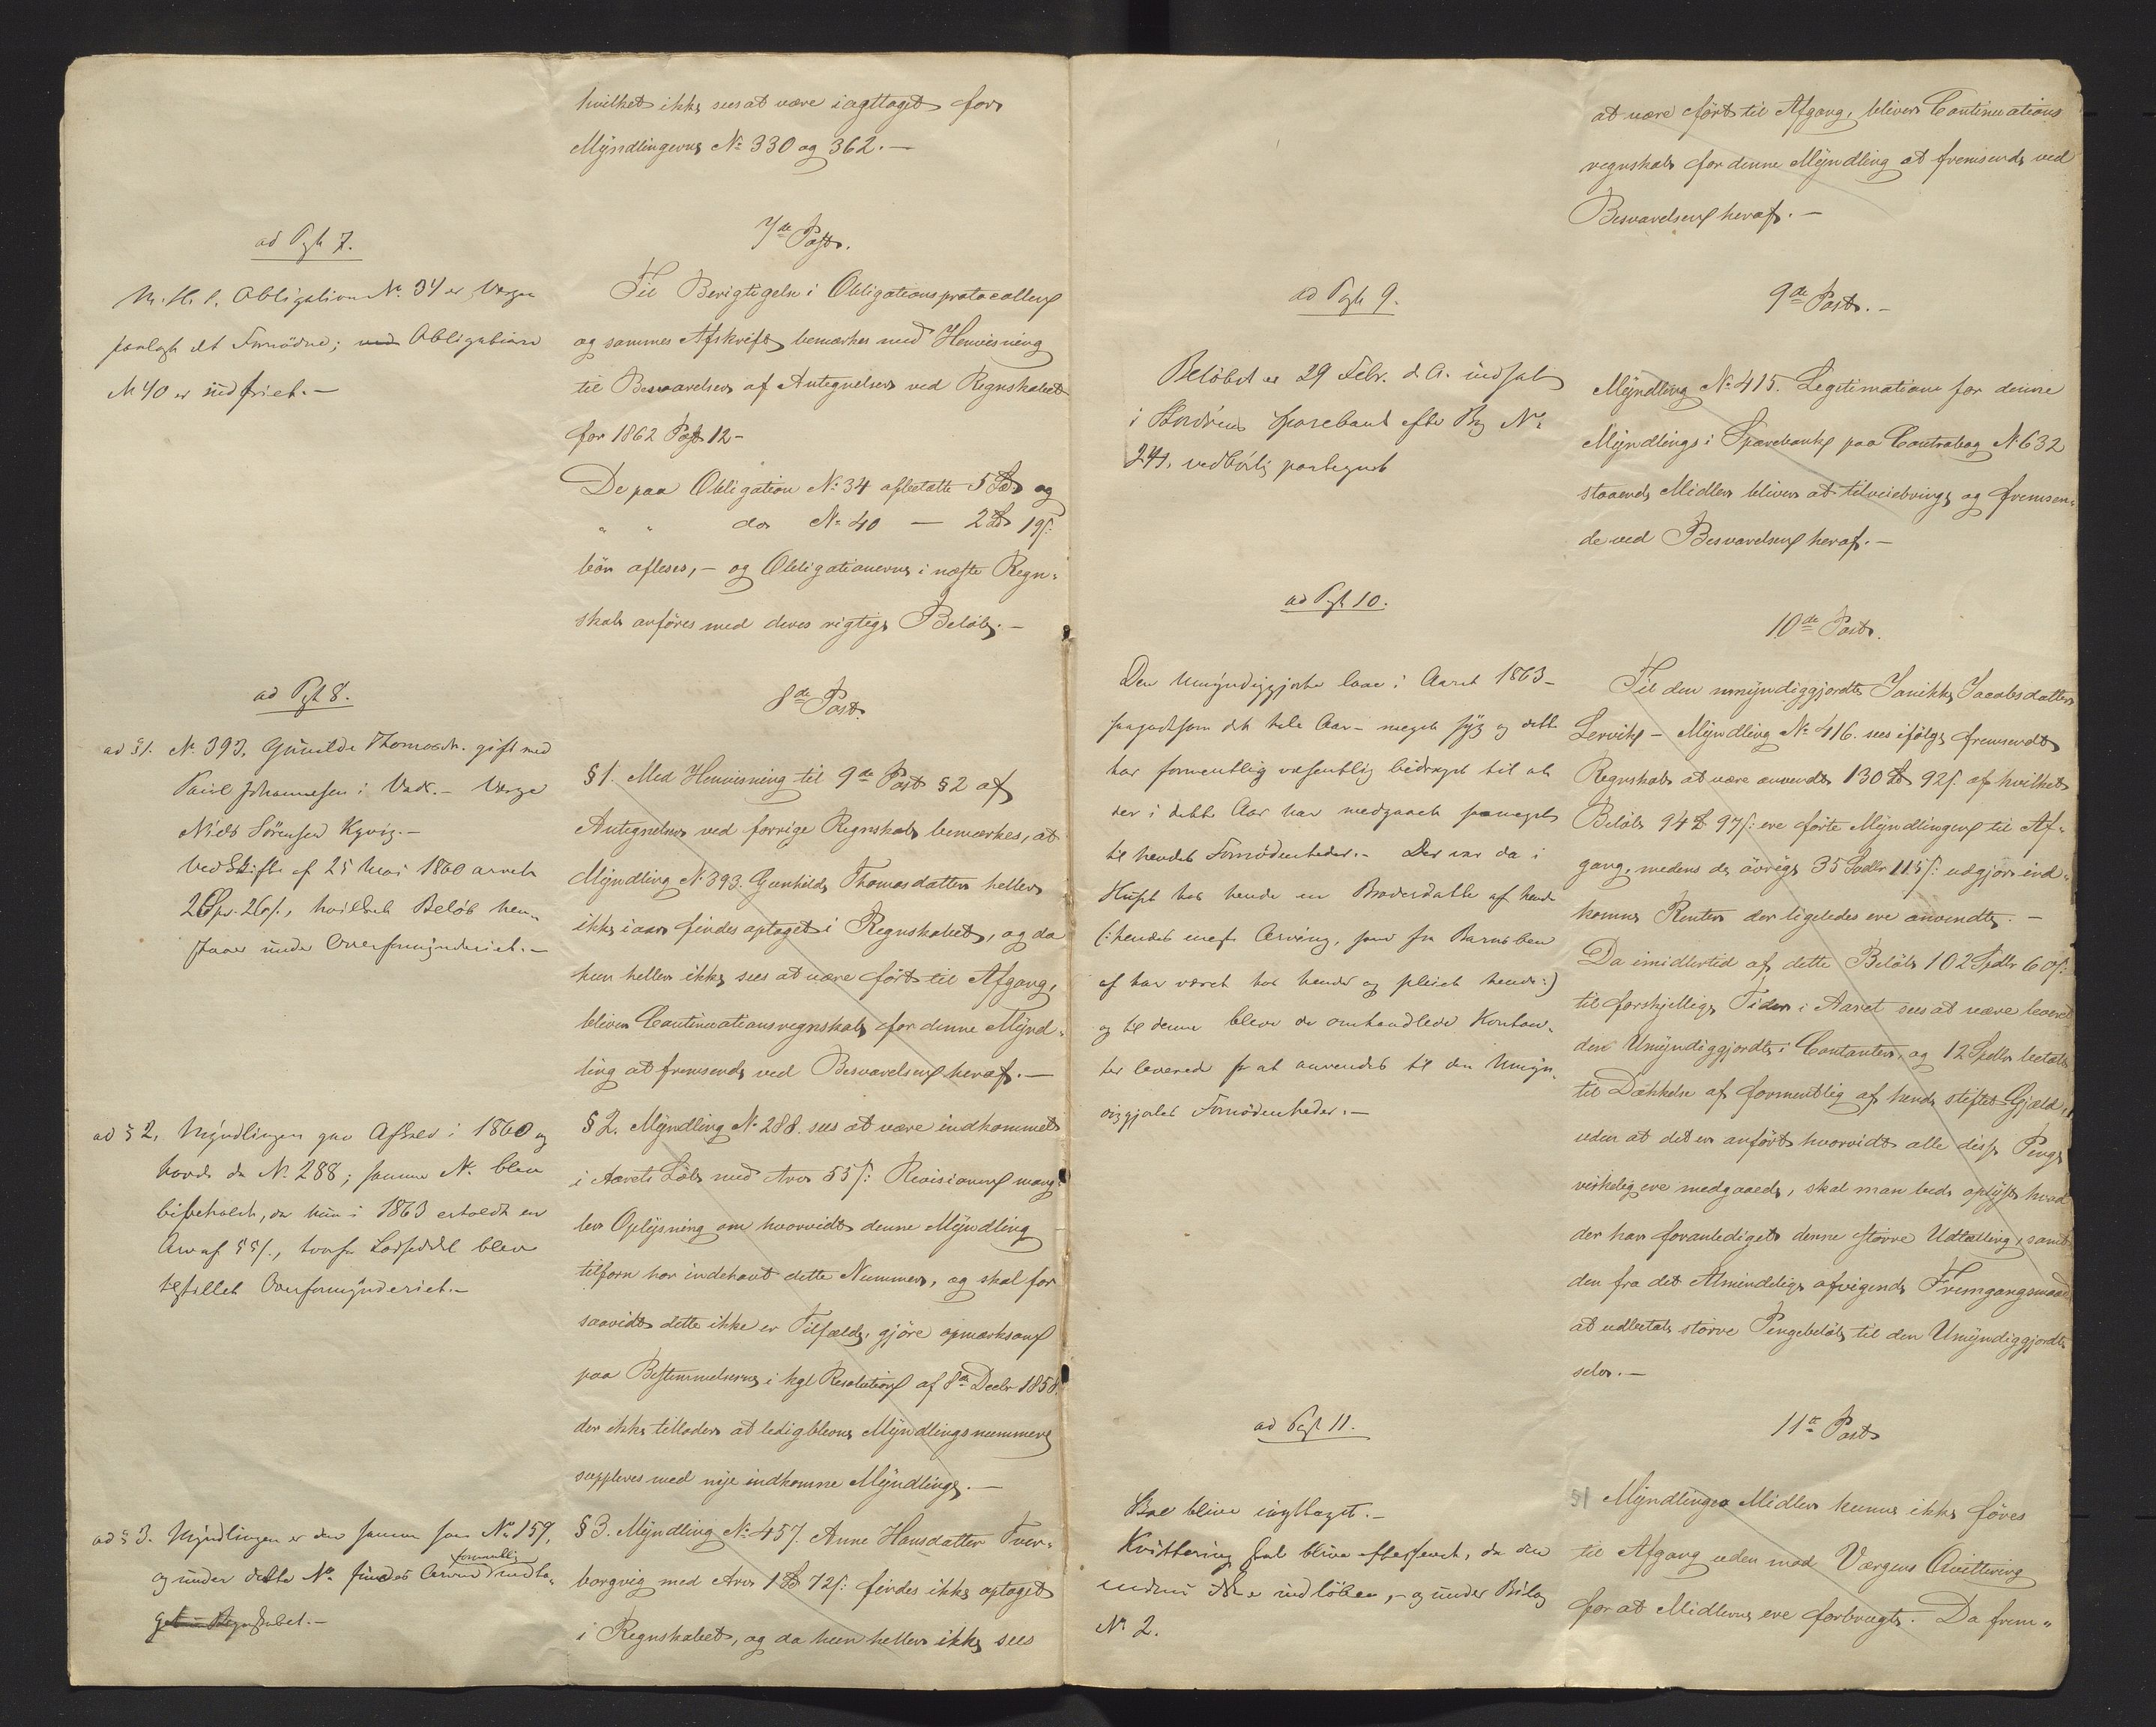 hvilket ikke sees at være iagttaget for
Myndlingerne No 330 og 362.—
ad Pgt 7.
M. H. t. Obligation No. 34 er Værgen
paalagt det Fornödne; med Obligation
No 40 er indfriet.—
7de Post.
Til Berigtigelse i Obligationsprotocollen
og sammes Afskrift bemærkes med Henvisning
til Besvarelsen af Antegnelsen ved Regnskabet
for 1862 Post 12-
De paa Obligation No: 34 afbetalte 5 Spd og
" " do No 40 — 2 Spd 19 s:
bör afleses,— og Obligationerne i næste Regn-
skab anföres med deres rigtige Belöb.—
ad Pgt 8.
ad §1. No. 393. Gunilde Thomasdr. gift med
Paul Johannesen i Vad.- Værge
Niels Sörensen Kyvig.-
Ved Skifte af 25 Mai 1860 arvet
2 Spd. 26 s., hvilket Belöb hen-
staaer under Overformynderiet.—
8de Post.
§1. Med Henvisning til 9de Post §2 af
Antegnelsen ved forrige Regnskab bemærkes, at
Myndling No 393. Gunhilde Thomasdatter heller
ikke iaar findes optaget i Regnskabet, og da
hun heller ikke sees at være fört til Afgang,
bliver Continuationsregnskab for denne Mynd-
ling at fremsende ved Besvarelsen heraf.—
ad §2. Myndlingen gav Afkald i 1860 og
havde da No. 288; samme No. blev
bibeholdt, da hun i 1863 erholdt en
Arv af 55 s., hvorfor Lodseddel blev
tilstillet Overformynderiet.—
§2. Myndling No 288. sees at være indkommet
i Aarets Löb med Arv 55 s: Revisionen mang-
ler Oplysning om hvorvidt denne Myndling
tilforn har indehavt dette Nummer, og skal for
saavidt dette ikke er Tilfælde, gjöre opmærksom
paa Bestemmelserne i kgl Resolution af 8de Decbr 1858.
der ikke tillader at ledigblevne Myndlingsnummere
suppleres med nye indkomne Myndlinge.—
ad §3. Myndlingen er den samme som No. 159,
og under dette No. findes Arven formentlig indta-
get i Regnskabet.—
§3. Myndling No: 457. Anne Hansdatter Tver-
borgvig med Arv 1 Spd 72 s: findes ikke optaget
i Regnskabet, og da hun heller ikke sees
at være fört til Afgang, bliver Continuations
regnskab for denne Myndling at fremsende ved
Besvarelsen heraf.—
ad Pgt 9.
Belöbet er 29 Febr. d. A. indsat
i Stordöens Sparebank efter Bog No.
241. vedbörlig paategnet
9de Post.-
Myndling No 415. Legitimation for denne
Myndlings i Sparebanke paa Contrabog No 632
staaende Midler bliver at tilveiebringe og fremsen-
de ved Besvarelsen heraf.—
ad Pgt 10.
Den umyndiggjorte laae i Aaret 1863-
saagodtsom det hele Aar- meget syg og dette
har formentlig væsentlig bidraget til at
der i dette Aar har medgaaet saameget
til hendes Fornödenheder.- Der var da i
Huset hos hende en Broderdatter af hende
(: hendes eneste Arving, som fra Barnsben
af har været hos hende og pleiet hende:)
og til denne bleve de omhandlede Kontan-
ter leverede for at anvendes til den Umyn-
diggjortes Fornödenheder.—
10de Post.
Til den umyndiggjordte Janikke Jacobsdatter
Lervik— Myndling No 416. sees ifölge fremsendte
Regnskab at være anvendt 130 Spd 92 s. af hvilket
Belöb 94 Spd 97 s: ere förte Myndlingen til Af-
gang, medens de övrige 35 Spdlr 115 s: udgjör ind-
komne Renter der ligeledes ere anvendte.—
Da imidlertid af dette Belöb 102 Spdlr 60 s:
til forskjellige Tider i Aaret sees at være leveret
den Umyndiggjordte i Contanter, og 12 Spdlr betalt
til Dækkelse af formentlig af hende stiftet Gjæld,
uden at det er anfört hvorvidt alle disse Penge
virkelig ere medgaaede, skal man bede oplyst hvad
der har foranlediget denne större Udtælling, samt
den fra det Almindelige afvigende Fremgangsmaade
at udbetale större Pengebelöb til den Umyndiggjordte
selv.—
ad Pgt 11.
Skal blive iagttaget.—
Kvittering skal blive eftersendt, da den
endnu ikke er indlöben,— og under Bilag
No 2.
11te Post
§1 Myndlinges Midler kunne ikke föres
til Afgang uden mod Værgens Qvittering
for at Midlerne ere forbrugte. Da frem-